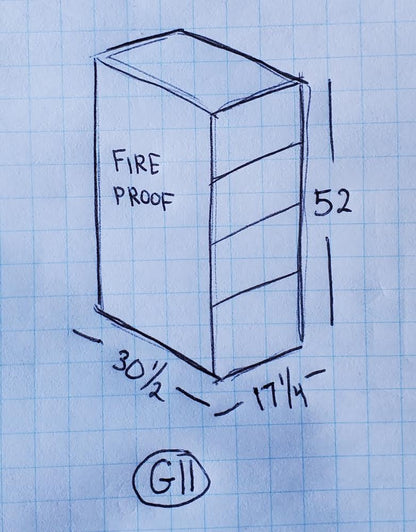 FIRE
PROOF
52
30 1/2
17 1/4
G11